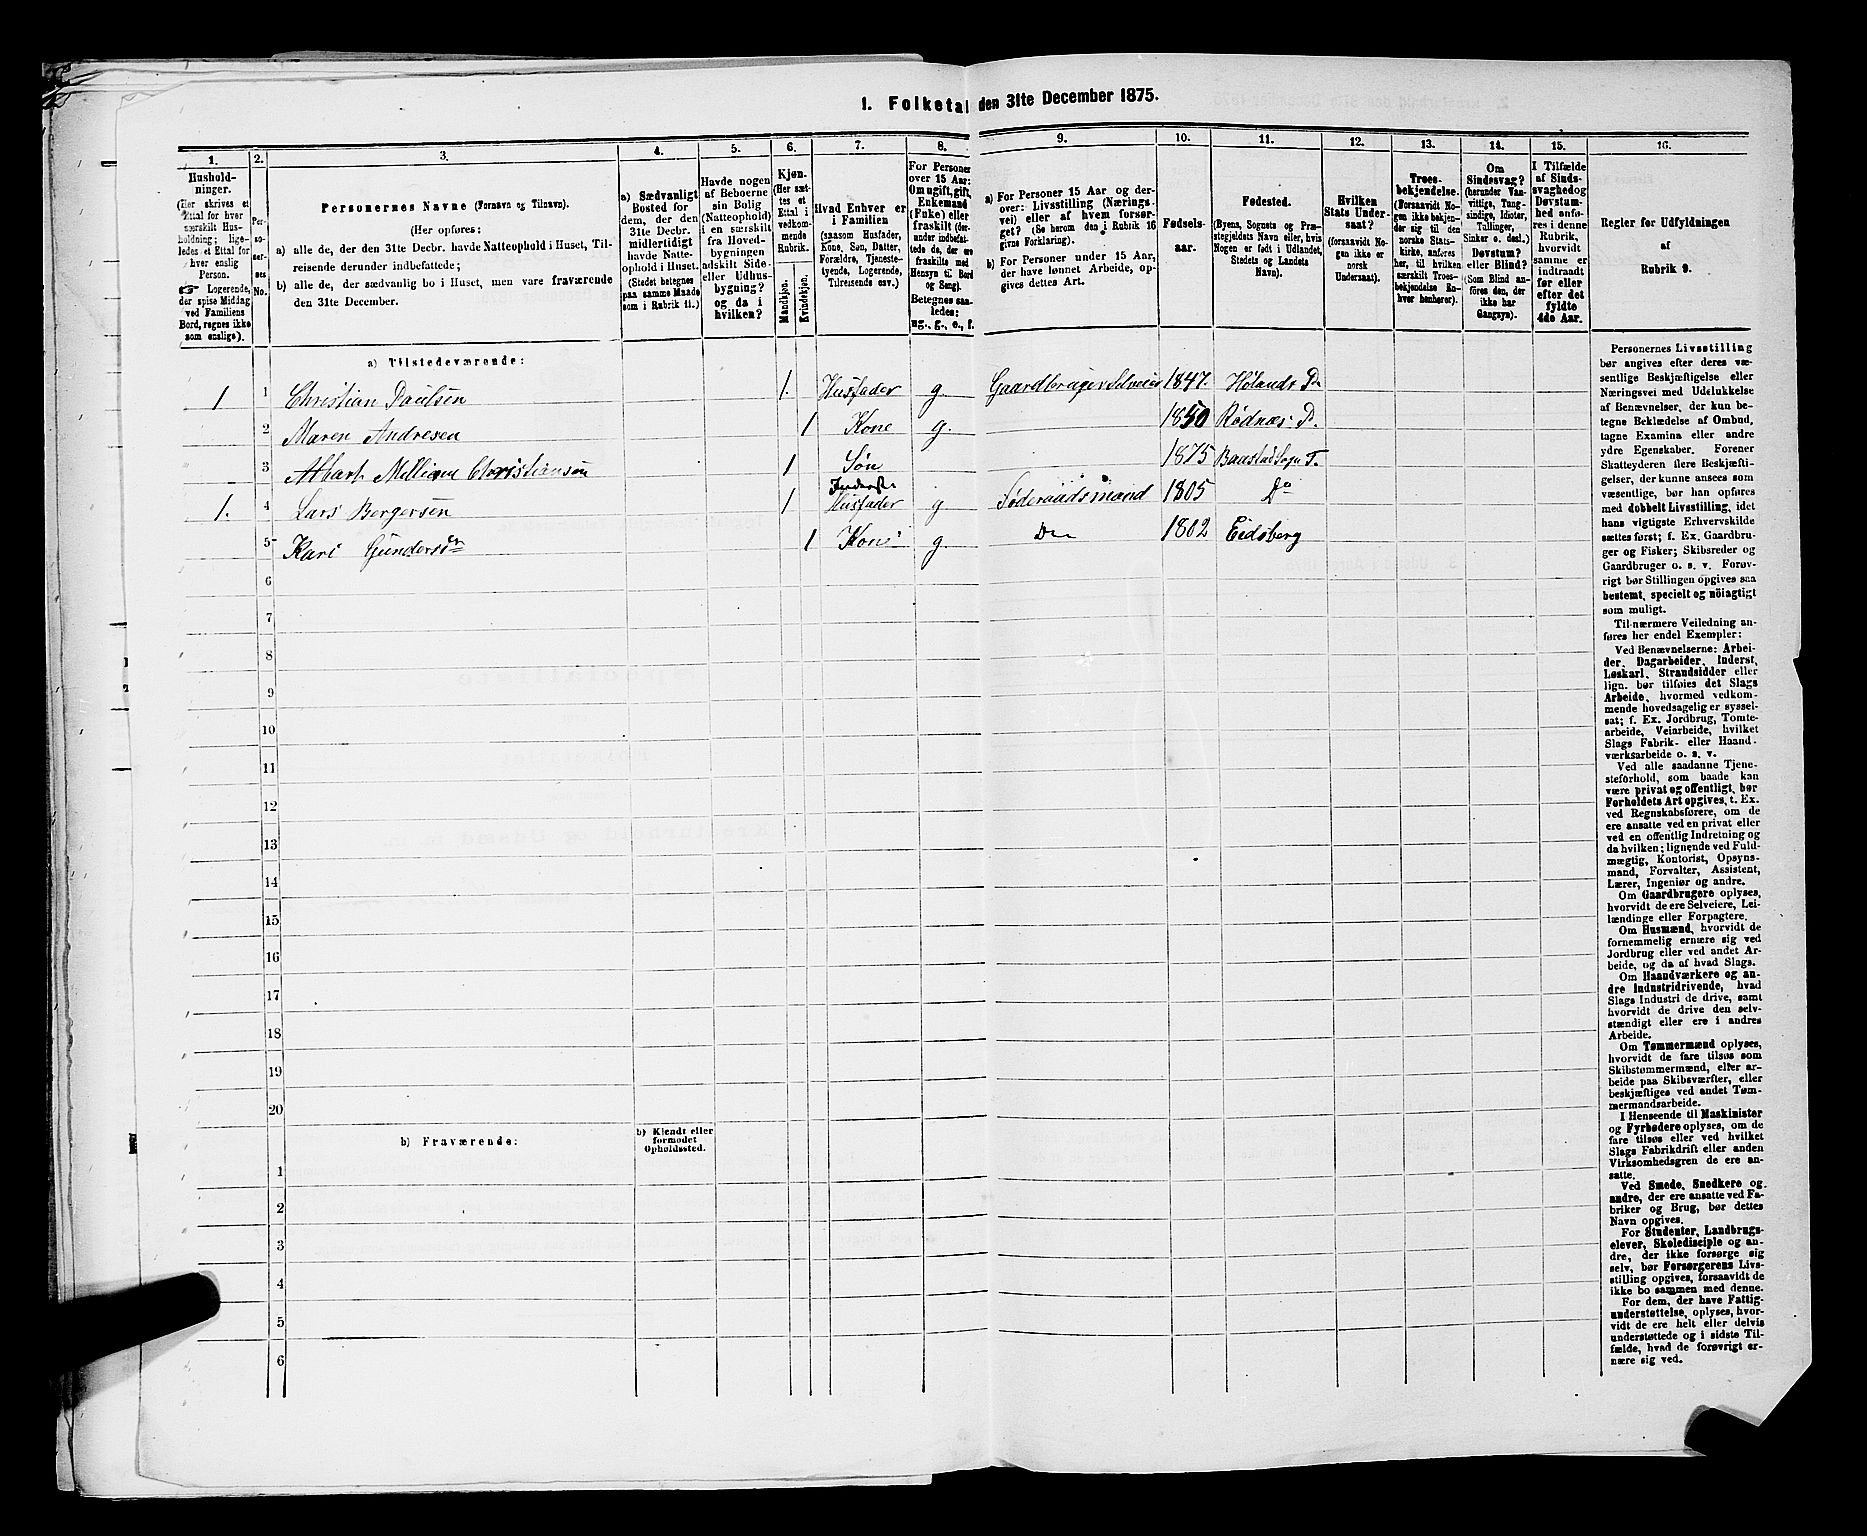 1. Folketal den 31te December 1875.
1.
Hushold-
ninger.
(Her skrives et
Ettal for hver
særskilt Hus-
holdning; lige-
ledes et Ettal for
hver enslig
Person.
☞ Logerende,
der spise Middag
ved Familiens
Bord, regnes ikke
som enslige).
2.
Per-
so-
ner-
nes
No.
3.
Personernes Navne (Fornavn og Tilnavn).
(Her opføres:
a) alle de, der den 31te Decbr. havde Natteophold i Huset, Til-
reisende derunder indbefattede;
b) alle de, der sædvanlig bo i Huset, men vare fraværende
den 31te December.
4.
a) Sædvanligt
Bosted for
dem, der den
31te Decbr.
midlertidigt
havde Natte-
ophold i Huset.
(Stedet betegnes
paa samme Maade
som i Rubrik 11.)
5.
Havde nogen
af Beboerne
sin Bolig
(Natteophold)
i en særskilt
fra Hoved-
bygningen
adskilt Side-
eller Udhus-
bygning?
og da i
hvilken?
6.
Kjøn.
(Her sæt-
tes et
Ettal i
vedkom-
mende
Rubrik.
Mandkjøn.
Kvindekjøn.
7.
Hvad Enhver er
i Familien
(saasom Husfader,
Kone, Søn, Datter,
Forældre, Tjeneste-
tyende, Logerende,
Tilreisende osv.)
8.
For Personer
over 15 Aar:
Om ugift, gift,
Enkemand
(Enke) eller
fraskilt (der-
under indbefat-
tede de, der ere
fraskilte med
Hensyn til Bord
og Seng).
Betegnes saa-
ledes:
ug., g., e., f.
9.
a) For Personer 15 Aar og der-
over: Livsstilling (Nærings-
vei) eller af hvem forsør-
get? (Se herom den i Rubrik 16
givne Forklaring).
b) For Personer under 15 Aar,
der have lønnet Arbeide, op-
gives dettes Art.
10.
Fødsels-
aar.
11.
Fødested.
(Byens, Sognets og Præ-
stegjeldets Navn eller, hvis
Nogen er født i Udlandet,
Stedets og Landets
Navn).
12.
Hvilken
Stats Under-
saat?
(forsaavidt No-
gen ikke er
norsk
Undersaat).
13.
Troes-
bekjendelse.
(Forsaavidt No-
gen ikke bekjen-
der sig til den
norske Stats-
kirke, anføres
her, til hvilken
særskilt Troes-
bekjendelse En-
hver henhører).
14.
Om
Sindssvag?
(herunder Van-
vittige, Tung-
sindige, Idioter,
Tullinger,
Sinker o. desl.)
Døvstum?
eller Blind?
(Som Blind an-
føres den, der
ikke har
Gangsyn).
15.
I Tilfælde
af Sinds-
svaghed og
Døvstum-
hed anfø-
res i denne
Rubrik,
hvorvidt
samme er
indtraadt
før eller
efter det
fyldte
4de Aar.
16.
Regler for Udfyldningen
af
Rubrik 9.
a) Tilstedeværende:
1 1 Christian Paulsen 1. Husfader g. Gaardbruger Selveier 1847.
2 Maren Andresen 1 Kone g. 1850 Rødnæs P.
3 Christiansen 1 Søn 1875
1. 4 Lars Bergersen 1 Inderst Husfader g Føderaadsmand 1805 Do
5 Kari Gundersdr 1 Kone g. Do 1802 Eidsberg
6
7
8
9
10
11
12
13
14
15
16
17
18
19
20
b) Fraværende:
b) Kjendt eller
formodet
Opholdssted.
1
2
3
4
5
6
Personernes Livsstilling
bør angives efter deres væ-
sentlige Beskjæftigelse eller
Næringsvei med Udelukkelse
af Benævnelser, der kun be-
tegne Beklædelse af Ombud,
tagne Examina eller andre
ydre Egenskaber. Forener
Skatteyderen flere Beskjæfti-
gelser, der kunne ansees som
væsentlige, bør han opføres
med dobbelt Livsstilling, idet
hans vigtigste Erhvervskilde
sættes først; f. Ex. Gaardbru-
ger og Fisker; Skibsreder og
Gaardbruger o. s. v. Forøv-
rigt bør Stillingen opgives saa
bestemt, specielt og nöiagtigt
som muligt.
Til nærmere Veiledning an-
føres her endel Exempler:
Ved Benævnelserne: Arbei-
der, Dagarbeider, Inderst,
Løskarl, Strandsidder eller
lign. bør tilføies det Slags
Arbeide, hvormed vedkom-
mende hovedsagelig er syssel-
sat; f. Ex. Jordbrug, Tomte-
arbeide, Veiarbeide, hvilket
Slags Fabrik- eller Haand-
værksarbeide o. s. v.
Ved alle saadanne Tjene-
steforhold, som baade kan
være privat og offentligt, bør
Forholdets Art opgives, t. Ex.
ved Regnskabsførere, om de
ere ansatte ved en privat eller
ved en offentlig Indretning og
da hvilken; lignende ved Fuld-
mægtig, Kontorist, Opsyns-
mand, Forvalter, Assistent,
Lærer, Ingeniør og andre.
Om Gaardbrugere oplyses,
hvorvidt de ere Selveiere, Lei-
lændinge eller Forpagtere.
Om Husmænd, hvorvidt de
fornemmelig ernære sig ved
Jordbrug eller ved andet Ar-
beide, og da af hvad Slags.
Om Haandværkere og an-
dre Industridrivende, hvad
Slags Industri de drive, samt
hvorvidt de drive den selv-
stændigt eller ere i andres
Arbeide.
Om Tømmermænd oplyses,
hvorvidt de fare tilsøs som
Skibstømmermænd, eller ar-
beide paa Skibsværfter, eller
beskjæftiges ved andet Tøm-
mermandsarbeide.
I Henseende til Maskinister
og Fyrbødere oplyses, om de
fare tilsøs eller ved hvilket
Slags Fabrikdrift eller anden
Virksomhedsgren de ere an-
satte.
Ved Smede, Snedkere og
andre, der ere ansatte ved Fa-
briker og Brug, bør dettes
Navn opgives.
For Studenter, Landbrugs-
elever, Skoledisciple og an-
dre, der ikke forsørge sig
selv, bør Forsørgerens Livs-
stilling opgives, forsaavidt de
ikke bo sammen med denne.
For dem, der have Fattig-
understøttelse, oplyses, hvor-
vidt de ere helt eller delvis
understøttede og i sidste Til-
fælde, hvad de forøvrigt er-
nære sig ved.